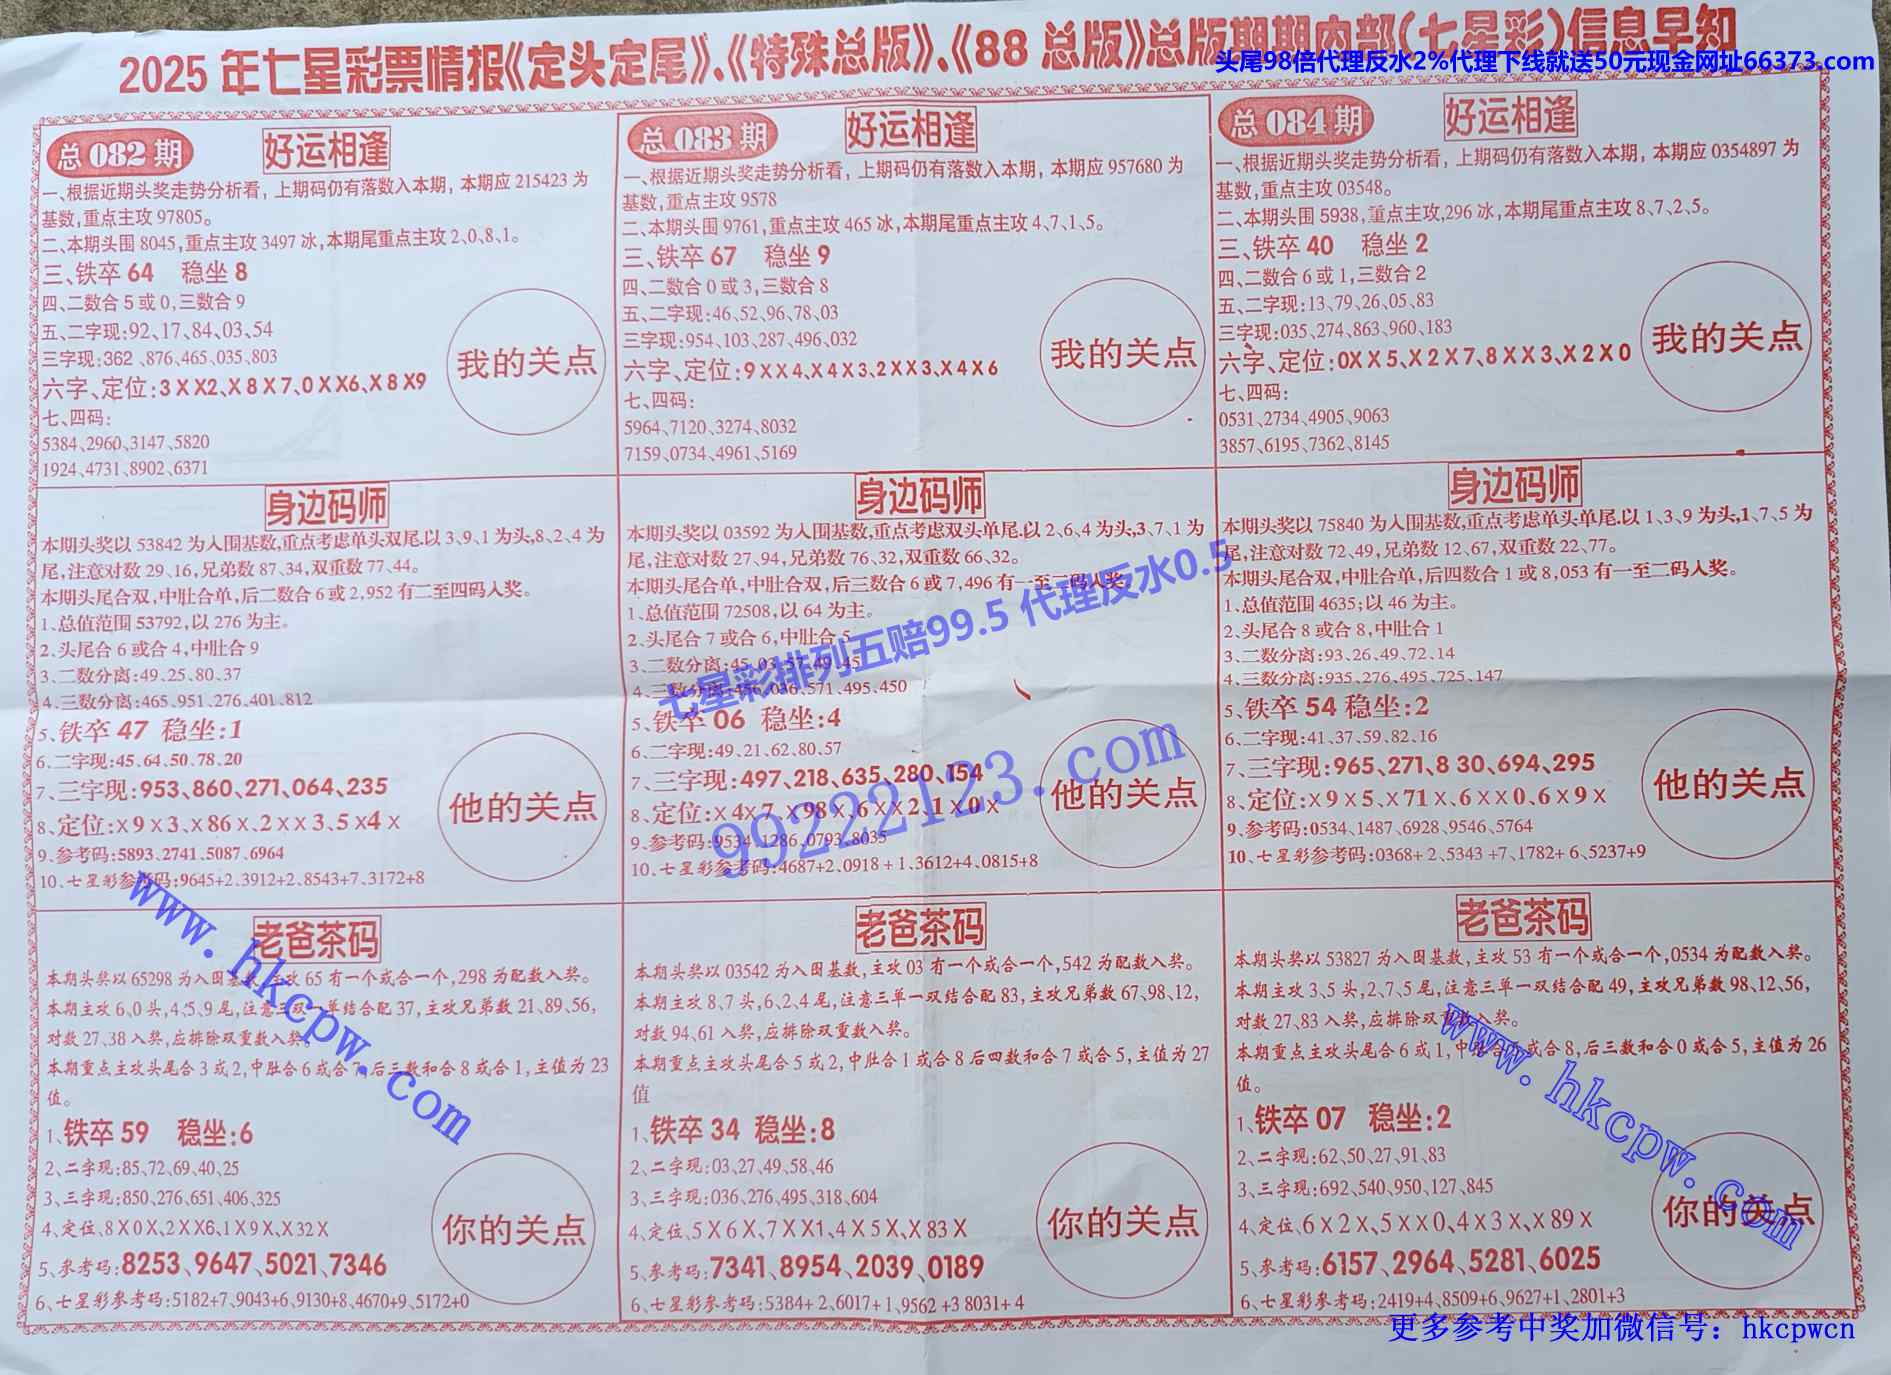 2025年七星彩票情报《定头定尾》、《特殊总版》、《88总版》总版期期内部(七星彩)信息早知
头尾98倍代理反水2%代理下线就送50元现金网址66373.com
总082期 好运相逢
一、根据近期头奖走势分析看，上期码仍有落数入本期，本期应215423为
基数,重点主攻97805。
二、本期头围8045,重点主攻3497冰,本期尾重点主攻2、0、8、1。
三、铁卒64 稳坐8
四、二数合5或0,三数合9
五、二字现:92、17、84、03、54
三字现:362、876、465、035、803
六字、定位:3XX2、X8X7、0XX6、X8X9
七、四码:
5384、2960、3147、5820
1924、4731、8902、6371
我的关点
总083期 好运相逢
一、根据近期头奖走势分析看，上期码仍有落数入本期，本期应957680为
基数,重点主攻9578
二、本期头围9761,重点主攻465冰,本期尾重点主攻4、7、1、5。
三、铁卒67 稳坐9
四、二数合0或3,三数合8
五、二字现:46、52、96、78、03
三字现:954、103、287、496、032
六字、定位:9XX4、X4X3、2XX3、X4X6
七、四码:
5964、7120、3274、8032
7159、0734、4961、5169
我的关点
总084期 好运相逢
一、根据近期头奖走势分析看，上期码仍有落数入本期，本期应0354897为
基数,重点主攻03548。
二、本期头围5938,重点主攻,296冰,本期尾重点主攻8、7、2、5。
三、铁卒40 稳坐2
四、二数合6或1,三数合2
五、二字现:13、79、26、05、83
三字现:035、274、863、960、183
六字、定位:0XX5、X2X7、8XX3、X2X0
七、四码:
0531、2734、4905、9063
3857、6195、7362、8145
我的关点
身边码师
本期头奖以53842为入围基数,重点考虑单头双尾.以3、9、1为头,8、2、4为
尾,注意对数29、16,兄弟数87、34,双重数77、44。
本期头尾合双,中肚合单,后二数合6或2,952有二至四码入奖。
1、总值范围53792,以276为主。
2、头尾合6或合4,中肚合9
3、二数分离:49、25、80、37
4、三数分离:465、951、276、401、812
5、铁卒47 稳坐:1
6、二字现:45、64、50、78、20
7、三字现:953、860、271、064、235
8、定位:X9X3、X86X、2XX3、5X4X
9、参考码:5893、2741、5087、6964
10、七星彩参考码:9645+2、3912+2、8543+7、3172+8
他的关点
身边码师
本期头奖以03592为入围基数,重点考虑双头单尾.以2、6、4为头,3、7、1为
尾,注意对数27、94,兄弟数76、32,双重数66、32。
本期头尾合单,中肚合双,后三数合6或7,496有一至二码入奖
1、总值范围72508,以64为主。
2、头尾合7或合6,中肚合5
3、二数分离:45、03、57、49、45
4、三数分离:456、036、571、495、450
5、铁卒06 稳坐:4
6、二字现:49、21、62、80、57
7、三字现:497、218、635、280、154
8、定位:X4X7、X98X、6XX2、1X0X
9、参考码:9534、1286、0793、8035
10、七星彩参考码:4687+2、0918+1、3612+4、0815+8
他的关点
身边码师
本期头奖以75840为入围基数,重点考虑单头单尾.以1、3、9为头,1、7、5为
尾,注意对数72、49,兄弟数12、67,双重数22、77。
本期头尾合双,中肚合单,后四数合1或8,053有一至二码入奖。
1、总值范围4635;以46为主。
2、头尾合8或合8,中肚合1
3、二数分离:93、26、49、72、14
4、三数分离:935、276、495、725、147
5、铁卒54 稳坐:2
6、二字现:41、37、59、82、16
7、三字现:965、271、830、694、295
8、定位:X9X5、X71X、6XX0、6X9X
9、参考码:0534、1487、6928、9546、5764
10、七星彩参考码:0368+2、5343+7、1782+6、5237+9
他的关点
七星彩排列五赔99.5 代理反水0.5
99222123.com
老爸茶码
本期头奖以65298为入围基数,主攻65有一个或合一个,298为配数入奖。
本期主攻6、0头,4、5、9尾,注意三双一单结合配37,主攻兄弟数21、89、56,
对数27、38入奖,应排除双重数入奖。
本期重点主攻头尾合3或2,中肚合6或合7,后三数和合8或合1,主值为23
值。
1、铁卒59 稳坐:6
2、二字现:85、72、69、40、25
3、三字现:850、276、651、406、325
4、定位、8X0X、2XX6、1X9X、X32X
5、参考码:8253、9647、5021、7346
6、七星彩参考码:5182+7、9043+6、9130+8、4670+9、5172+0
你的关点
www.hkcpw.com
老爸茶码
本期头奖以03542为入围基数,主攻03有一个或合一个,542为配数入奖。
本期主攻8、7头,6、2、4尾,注意三单一双结合配83,主攻兄弟数67、98、12,
对数94、61入奖,应排除双重数入奖。
本期重点主攻头尾合5或2,中肚合1或合8后四数和合7或合5,主值为27
值
1、铁卒34 稳坐:8
2、二字现:03、27、49、58、46
3、三字现:036、276、495、318、604
4、定位、5X6X、7XX1、4X5X、X83X
5、参考码:7341、8954、2039、0189
6、七星彩参考码:5384+2、6017+1、9562+3 8031+4
你的关点
老爸茶码
本期头奖以53827为入围基数,主攻53有一个或合一个,0534为配数入奖。
本期主攻3、5头,2、7、5尾,注意三单一双结合配49,主攻兄弟数98、12、56,
对数27、83入奖,应排除双重数入奖。
本期重点主攻头尾合6或1,中肚合 或合8,后三数和合0或合5,主值为26
值。
1、铁卒07 稳坐:2
2、二字现:62、50、27、91、83
3、三字现:692、540、950、127、845
4、定位、6X2X、5XX0、4X3X、X89X
5、参考码:6157、2964、5281、6025
6、七星彩参考码;2419+4、8509+6、9627+1、2801+3
你的关点
www.hkcpw.com
更多参考中奖加微信号：hkcpwcn